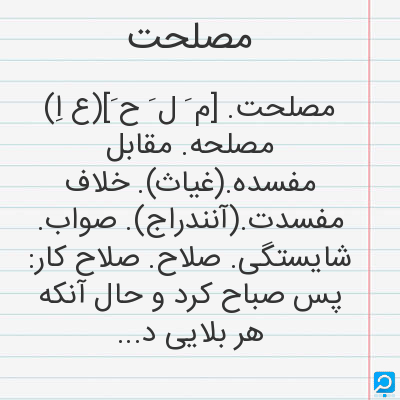 مصلحت
مصلحت. [م َ ل َ ح َ](ع اِ)
مصلحه. مقابل
مفسده.(غیاث). خلاف
مفسدت.(آنندراج). صواب.
شایستگی. صلاح. صلاح کار:
پس صباح کرد و حال آنکه
هر بلایی د...